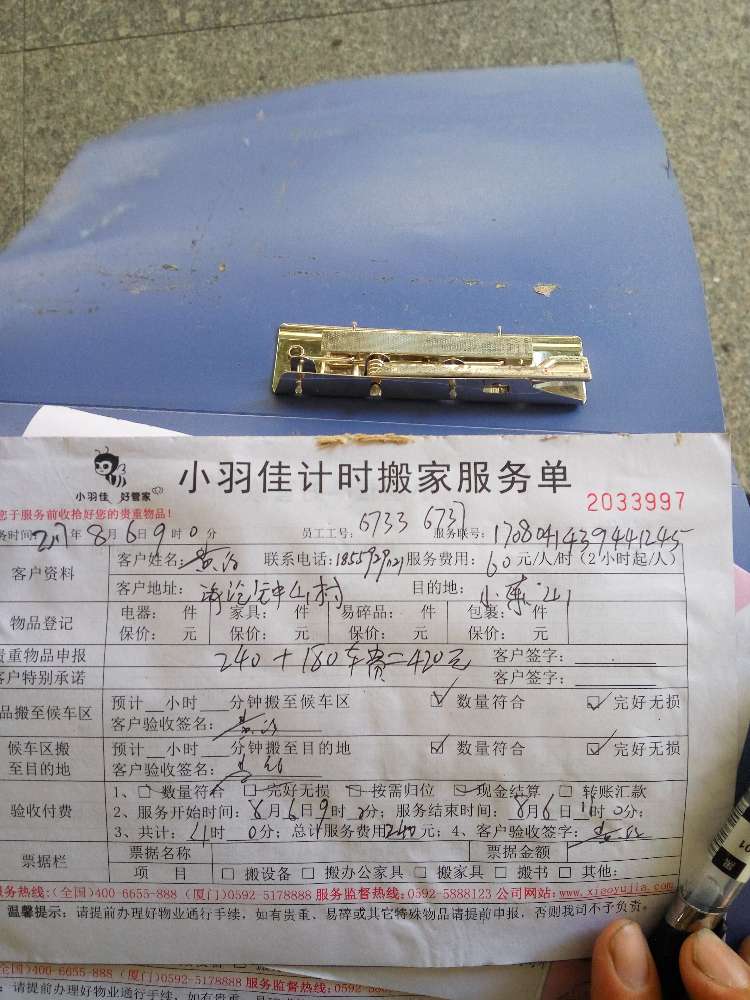 小羽佳 好管家
小羽佳计时搬家服务单
2033997
您于服务前收拾好您的贵重物品!
务时间 2017年8月6日9时0分 员工工号: 6733 6737 服务联号: 1708041439441245
客户资料
客户姓名: 联系电话: 服务费用: 60元/人/时(2小时起/人)
客户地址: 中山村 目的地: 小东山
物品登记
电器: 件 家具: 件 易碎品: 件 包裹: 件
保价: 元 保价: 元 保价: 元 保价: 元
贵重物品申报 240+180车费=420元 客户签字:
客户特别承诺 客户签字:
品搬至候车区
预计__小时__分钟搬至候车区 数量符合 完好无损
客户验收签名:
候车区搬至目的地
预计__小时__分钟搬至目的地 数量符合 完好无损
客户验收签名:
验收付费
1、数量符合 完好无损 按需归位 现金结算 转账汇款
2、服务开始时间: 8月6日9时0分; 服务结束时间: 8月6日11时0分;
3、共计: 4时0分; 总计服务费用240元; 4、客户验收签字:
票据栏
票据名称 票据金额
项 目 搬设备 搬办公家具 搬家具 搬书 其他:
服务热线:(全国)400-6655-888 (厦门)0592-5178888 服务监督热线:0592-5888123 公司网站:www.xiaoyujia.com
温馨提示: 请提前办理好物业通行手续, 如有贵重、易碎或其它特殊物品请提前申报, 否则我司不予负责。
全国)400-6655-888 (厦门)0592-5178888 服务监督热线:0592-588
: 请提前办理好物业通行手续, 如有贵重、易